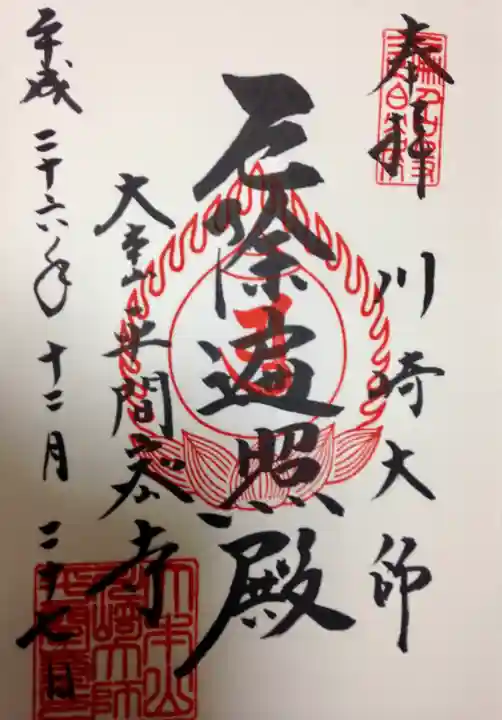 奉拝
川崎大師
厄除遍照殿
大本山平間寺
平成二十六年十二月二十七日